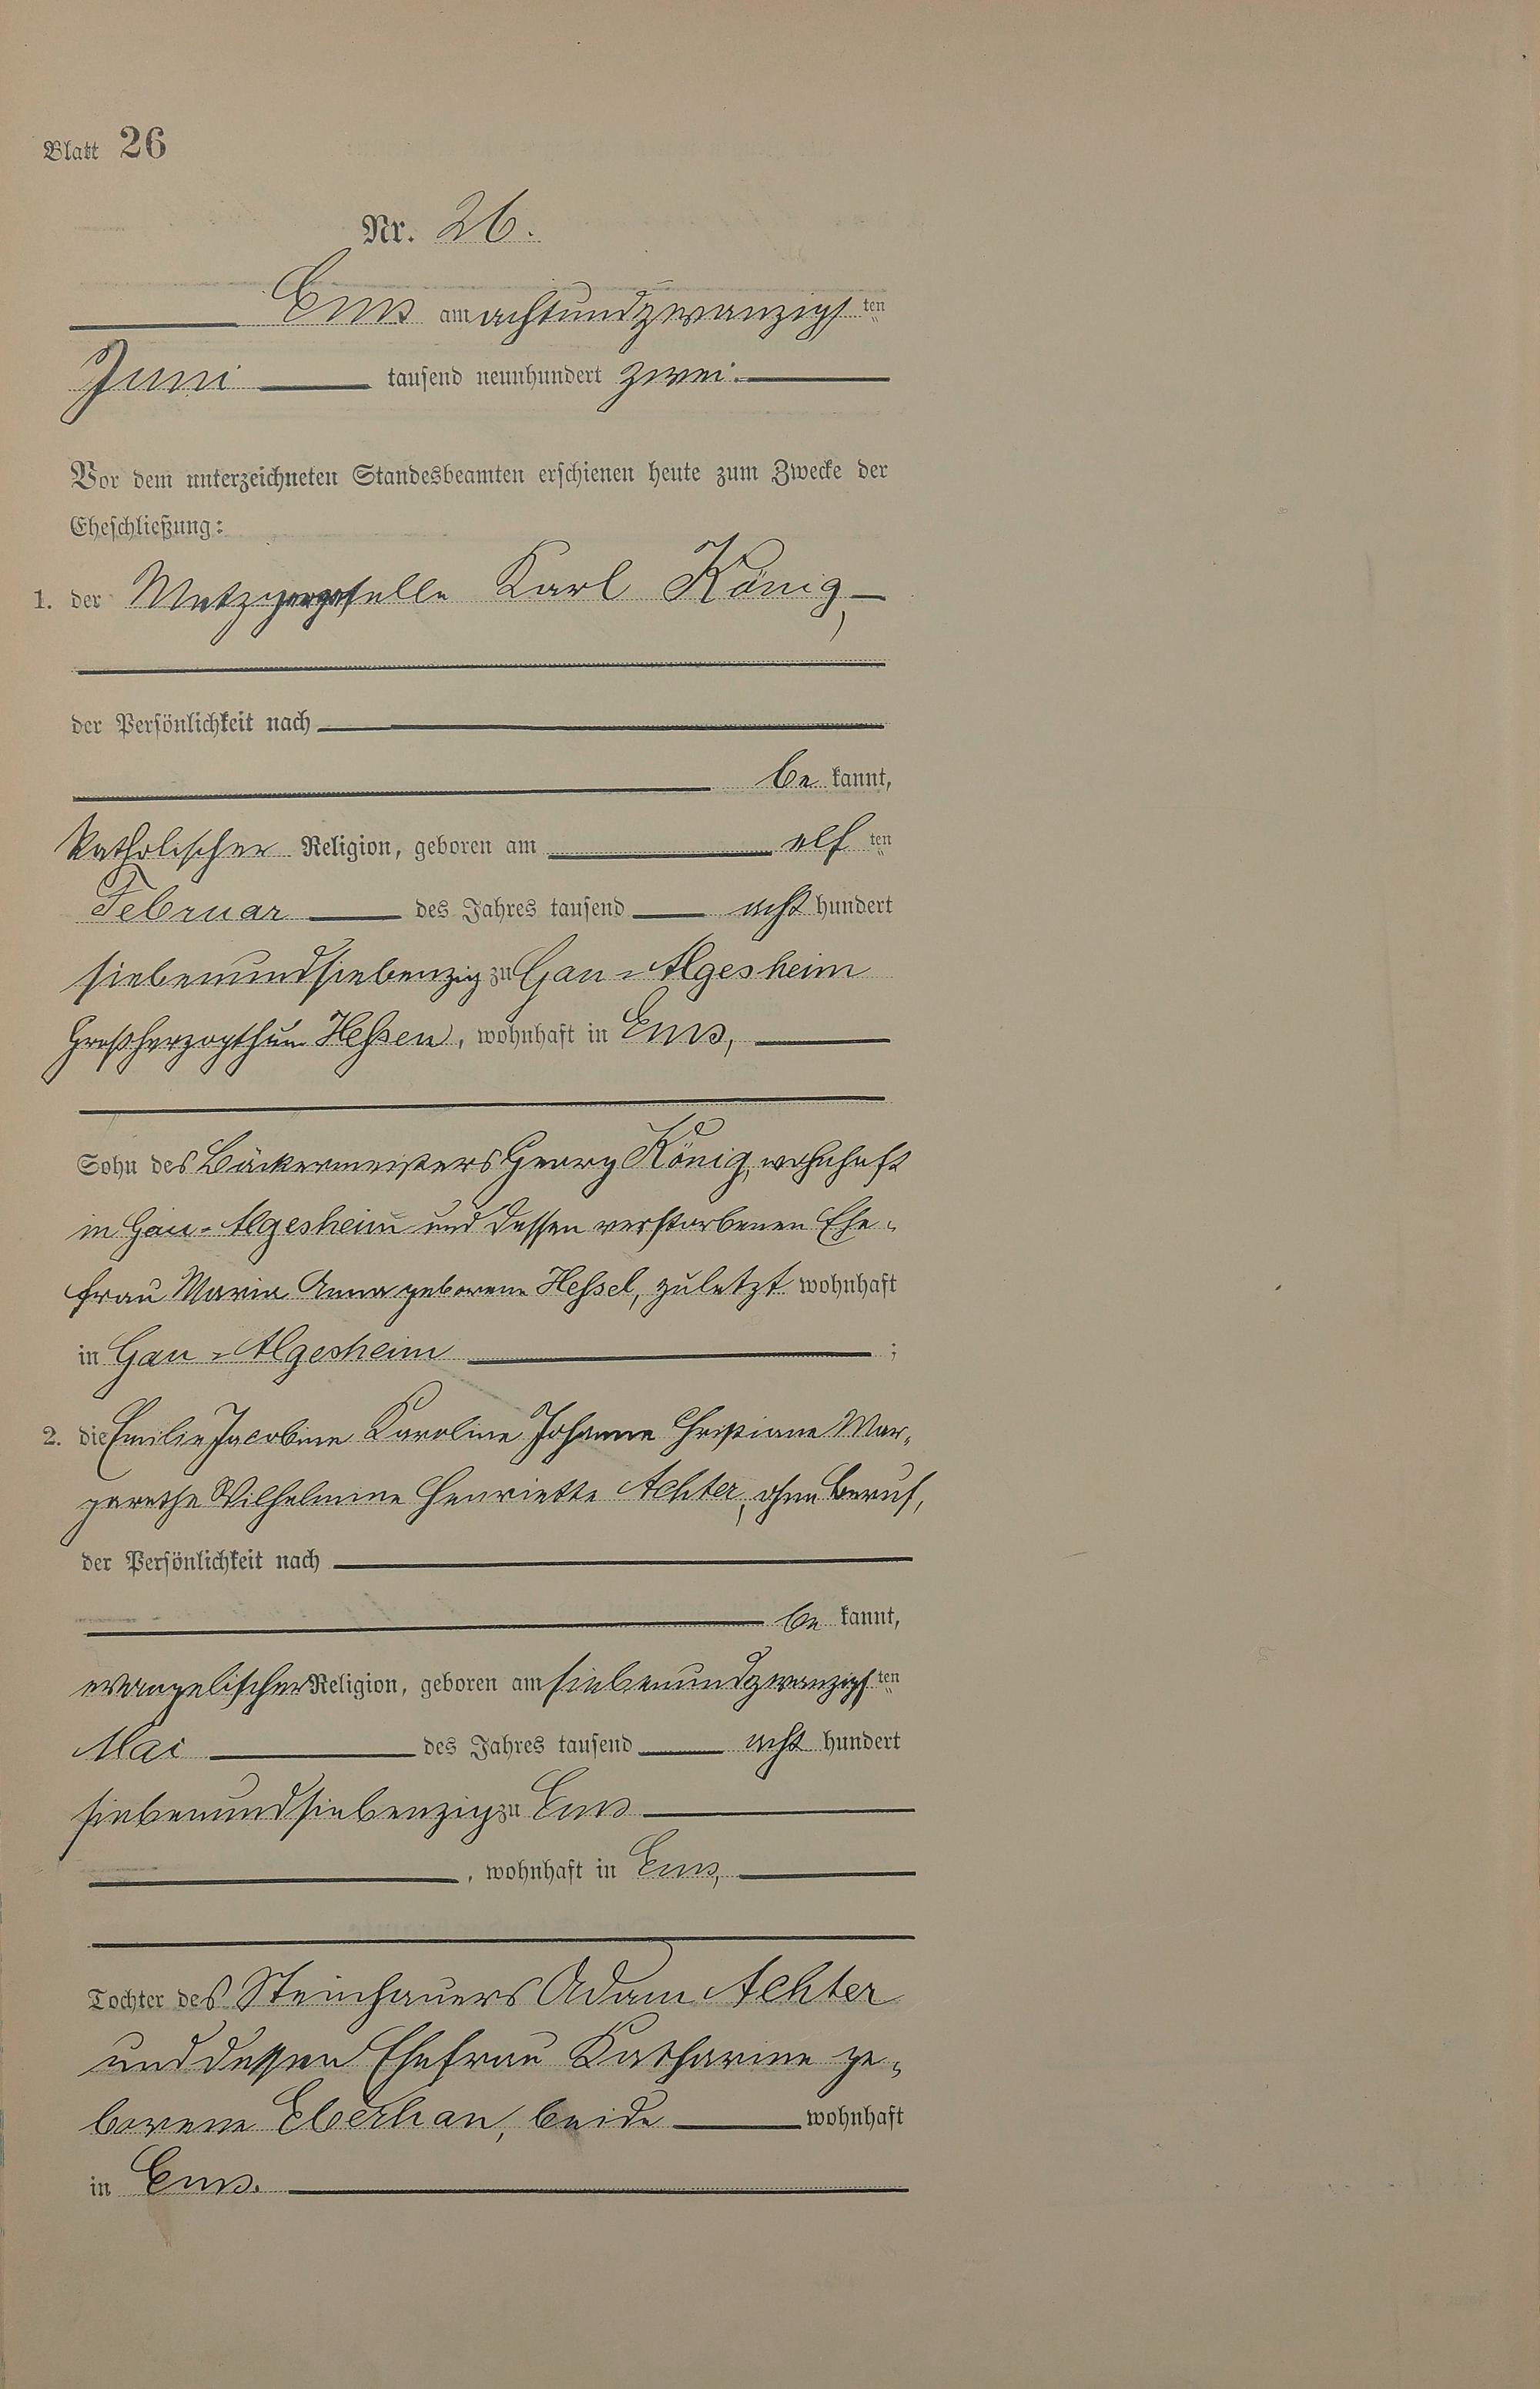 Blatt 26
Nr. 26.
Ems am achtundzwanzigsten
Juni tausend neunhundert zwei.
Vor dem unterzeichneten Standesbeamten erschienen heute zum Zwecke der
Eheschließung:
1. der Metzgergeselle Karl König,
der Persönlichkeit nach
be kannt,
katholischer Religion, geboren am elf ten
Februar des Jahres tausend acht hundert
siebenundsiebenzig zu Gau-Algesheim
Großherzogthum Hessen, wohnhaft in Ems,
Sohn des Bäckermeisters Georg König, wohnhaft
in Gau-Algesheim und dessen verstorbenen Ehe-
frau Maria Anna geborene Hessel, zuletzt wohnhaft
in Gau-Algesheim ;
2. die Emilie Jacobine Karoline Johanne Christiane Mar-
garethe Wilhelmine Henriette Achter, ohne Beruf,
der Persönlichkeit nach
be kannt,
evangelischer Religion, geboren am siebenundzwanzigsten
Mai des Jahres tausend acht hundert
siebenundsiebenzig zu Ems
, wohnhaft in Ems,
Tochter des Steinhauers Adam Achter
und dessen Ehefrau Katharine ge-
borene Eberhan, beide wohnhaft
in Ems.